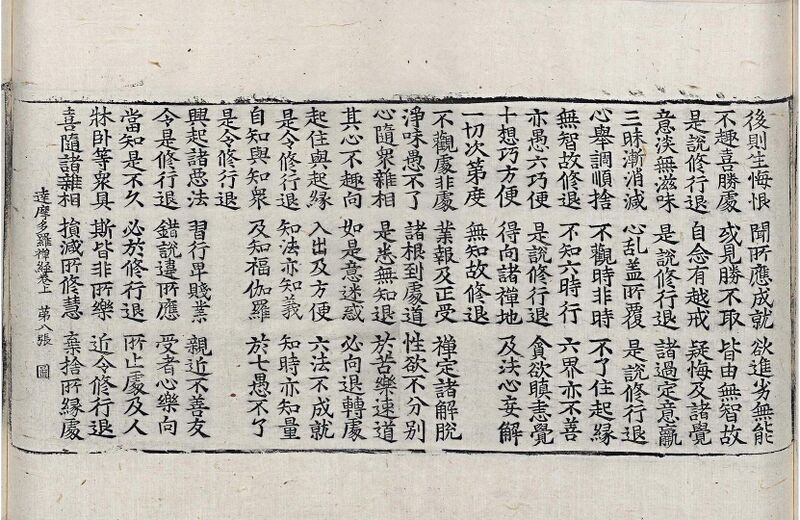 後則生悔恨 聞所應成就 欲進劣無能
不趣喜勝處 或見勝不取 皆由無智故
是說修行退 自念有越戒 疑悔及諸覺
意淡無滋味 是說修行退 諸過定意羸
三昧漸消減 心乱盖所覆 是說修行退
心舉調順捨 不觀時非時 不了住起緣
無智故修退 不知六時行 六界亦不善
亦愚六巧便 是說修行退 貪欲瞋恚覺
十想巧方便 得向諸禪地 及法心妄解
一切次第度 無知故修退
不觀處非處 業報及正受 禪定諸解脫
淨味愚不了 諸根到處道 性欲不分別
心隨衆雜相 是悉無知退 於苦樂速道
其心不趣向 如是意迷惑 必向退轉處
起住與起緣 入出及方便 六法不成就
是令修行退 知法亦知義 知時亦知量
自知與知衆 及知福伽羅 於七愚不了
是令修行退
興起諸惡法 習行卑賤業 親近不善友
令是修行退 錯說違所應 受者心樂向
當知是不久 必於修行退 所止處及人
牀卧等衆具 斯皆非所樂 近令修行退
喜隨諸雜相 損減所修慧 棄捨所緣處
達摩多羅禪經卷上 第八張 圖